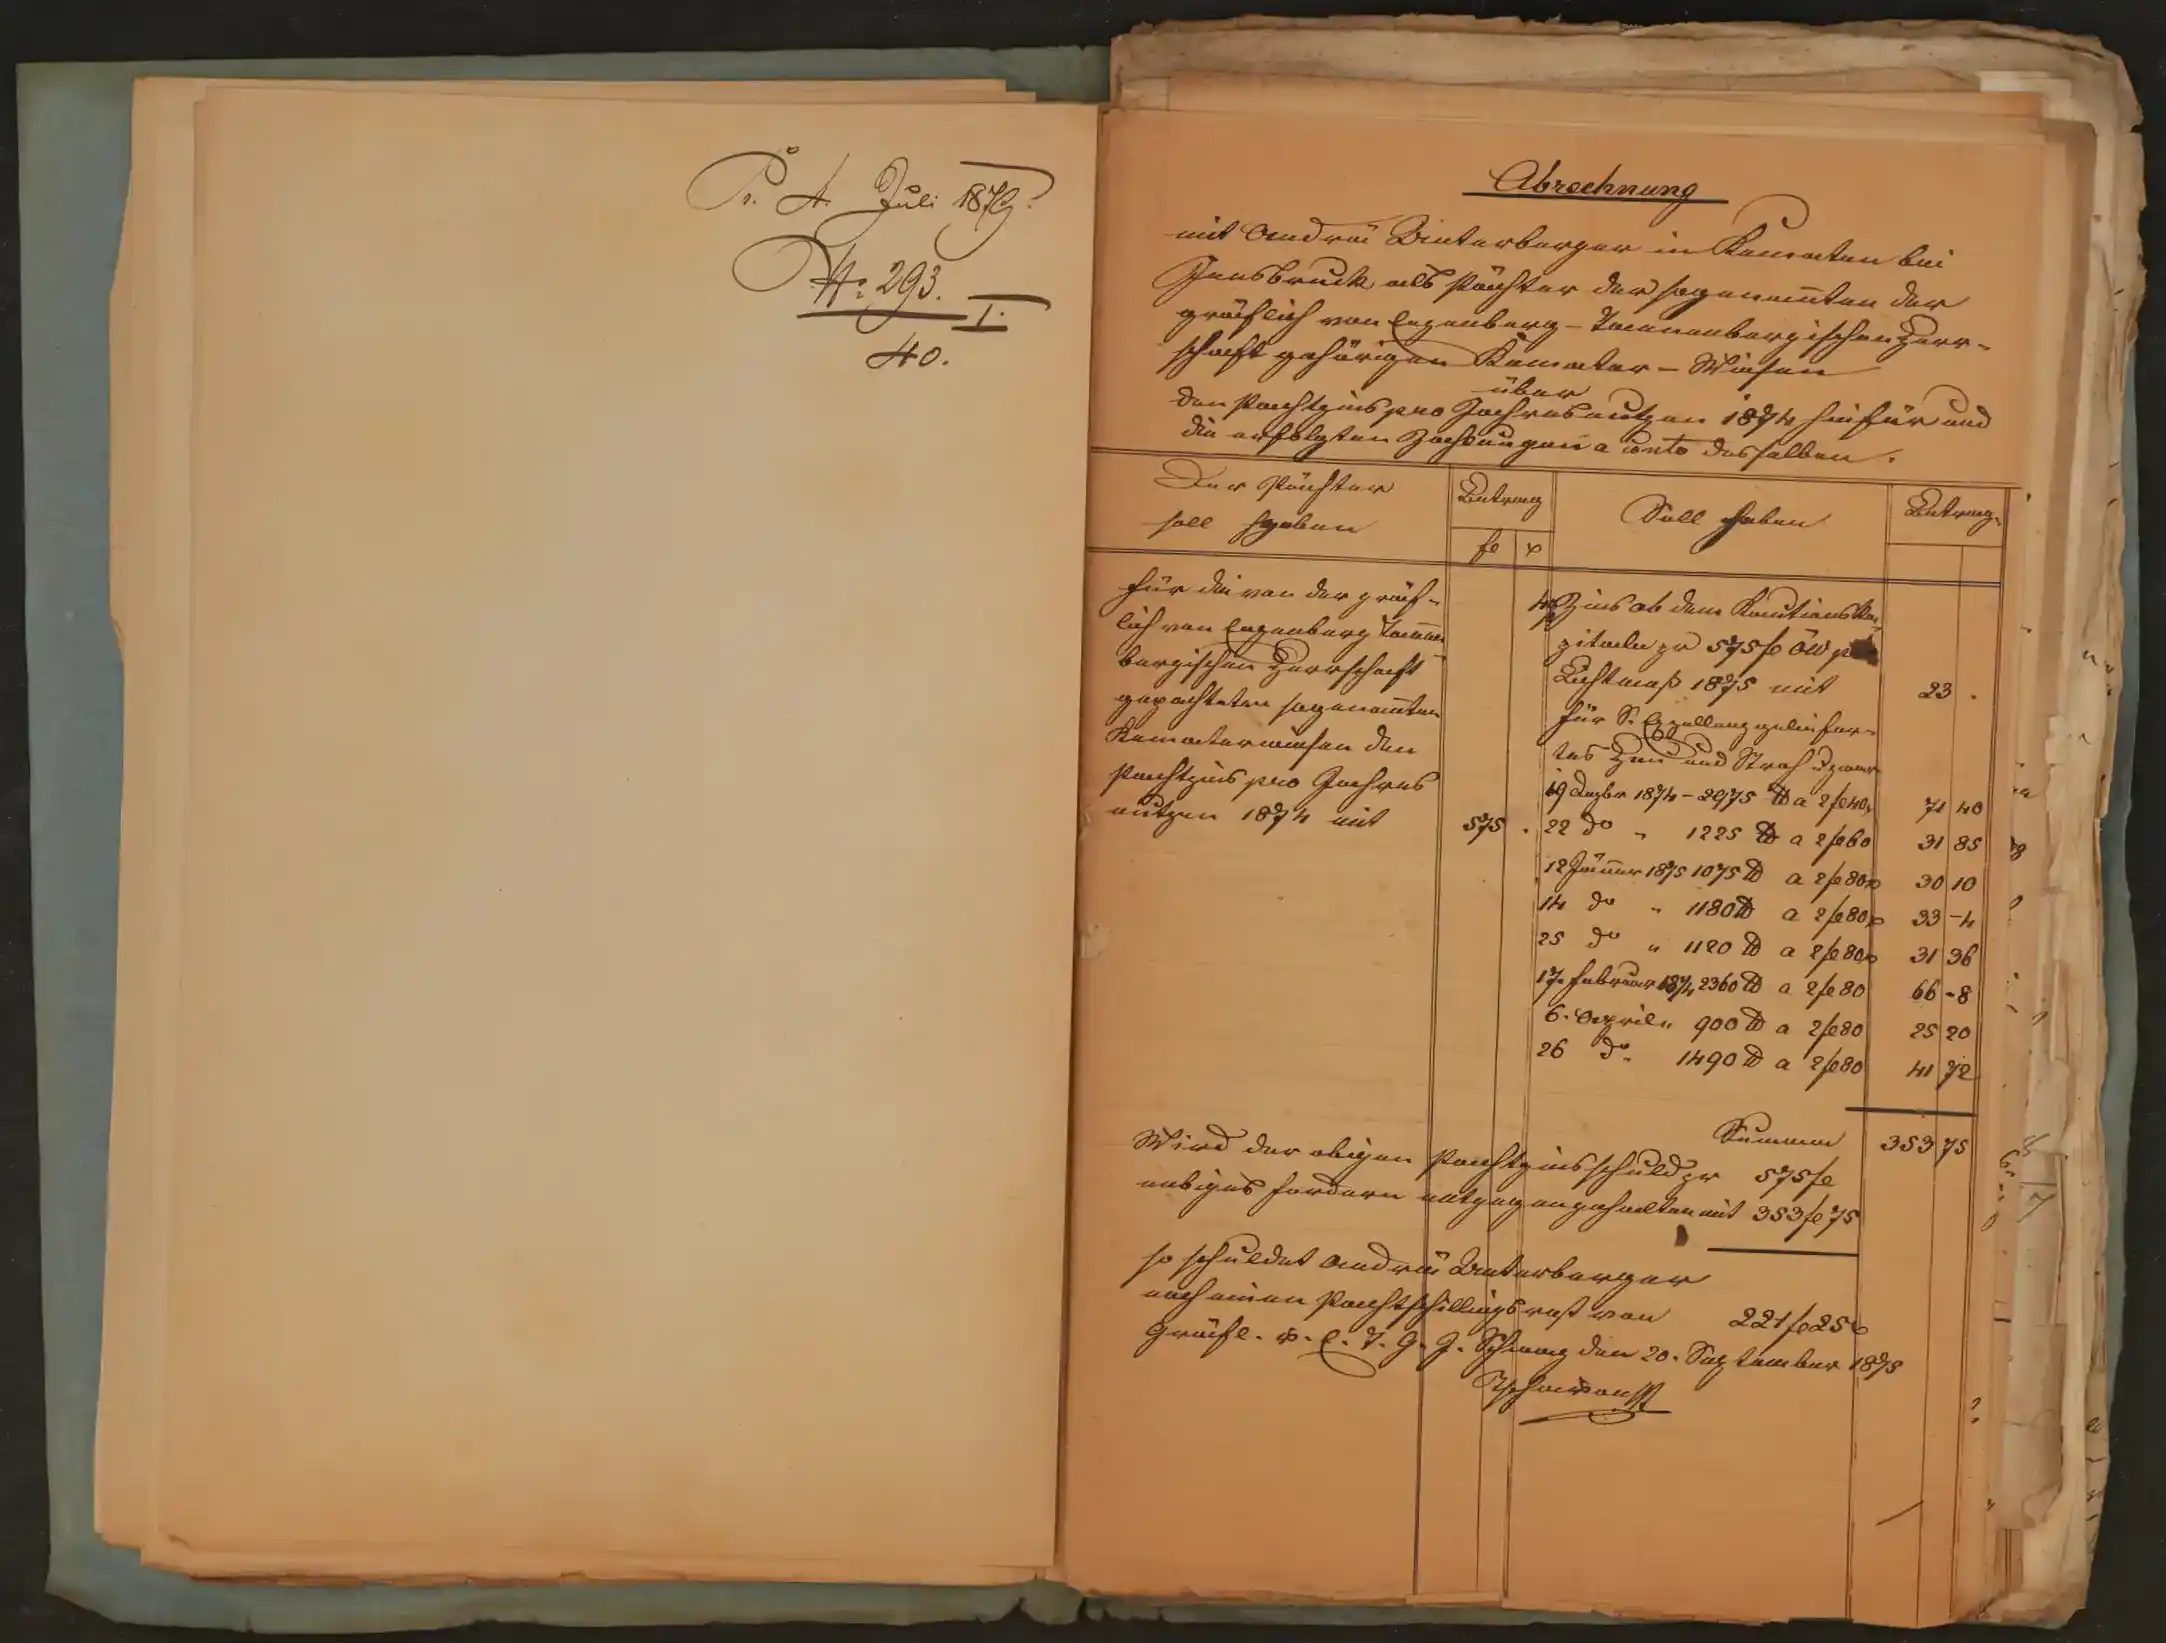 Pr. 4. Juli 1879.
N: 293.
I.
40.
Abrechnung
mit Andrä Unterberger in Kematen bei
Innsbruck als Pächter der sogenannten der
gräflich von Enzenberg-Tannenbergischen Herr-
schaft gehörigen Kemater-Wiesen
über
den Pachtzins pro Jahresnutzen 1874 hinfür und
die erfolgten Zahlungen a conto desselben.
Der Pächter
soll geben
Betrag
fl x
Soll haben
Betrag
Für die von der gräf-
lich von Enzenberg Tannen-
bergischen Herrschaft
gepachteten sogenannten
Kematerwiesen den
Pachtzins pro Jahres
nutzen 1874 mit 575 .
4% Zins ab dem Kautionska-
pitale pr 575 fl ÖW
Lichtmeß 1875 mit 23 .
für S. Exzellenz geliefer-
tes Heu und Stroh u zwar
19 Dezbr 1874 - 2975 ℔ a 2 fl 40x 71 40
22 do " 1225 ℔ a 2 fl 60 31 85
12 Jänner 1875 1075 ℔ a 2 fl 80x 30 10
14 do " 1180 ℔ a 2 fl 80x 33 -4
25 do " 1120 ℔ a 2 fl 80x 31 36
17. Februar 1874 2360 ℔ a 2 fl 80 66 -8
6. April " 900 ℔ a 2 fl 80 25 20
26 do " 1490 ℔ a 2 fl 80 41 72
Summa 353 75
Wird der obigen Pachtzinsschuld pr 575 fl
entgegengehalten mit 353 fl 75
so schuldet Andrä Unterberger
noch einen Pachtschillingsrest von 221 fl 25x
Gräfl. v. E. T. G. J. Schwaz den 20. September 1875